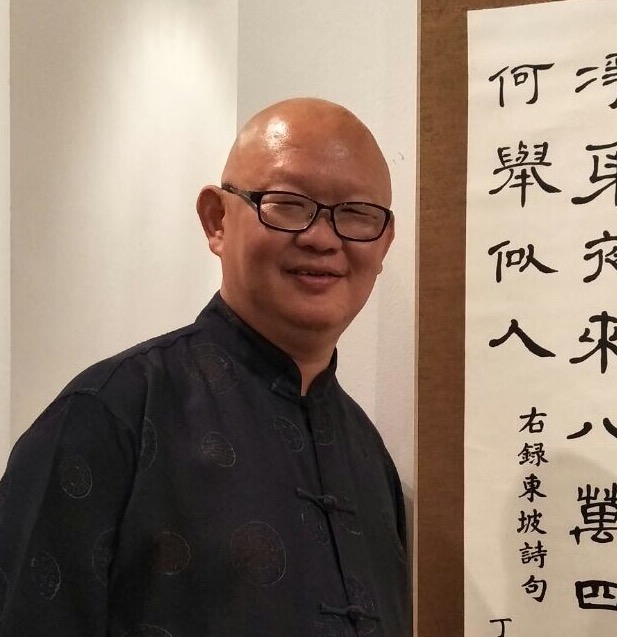 淨身夜來八萬四
何舉似人
右録東坡詩句
丁